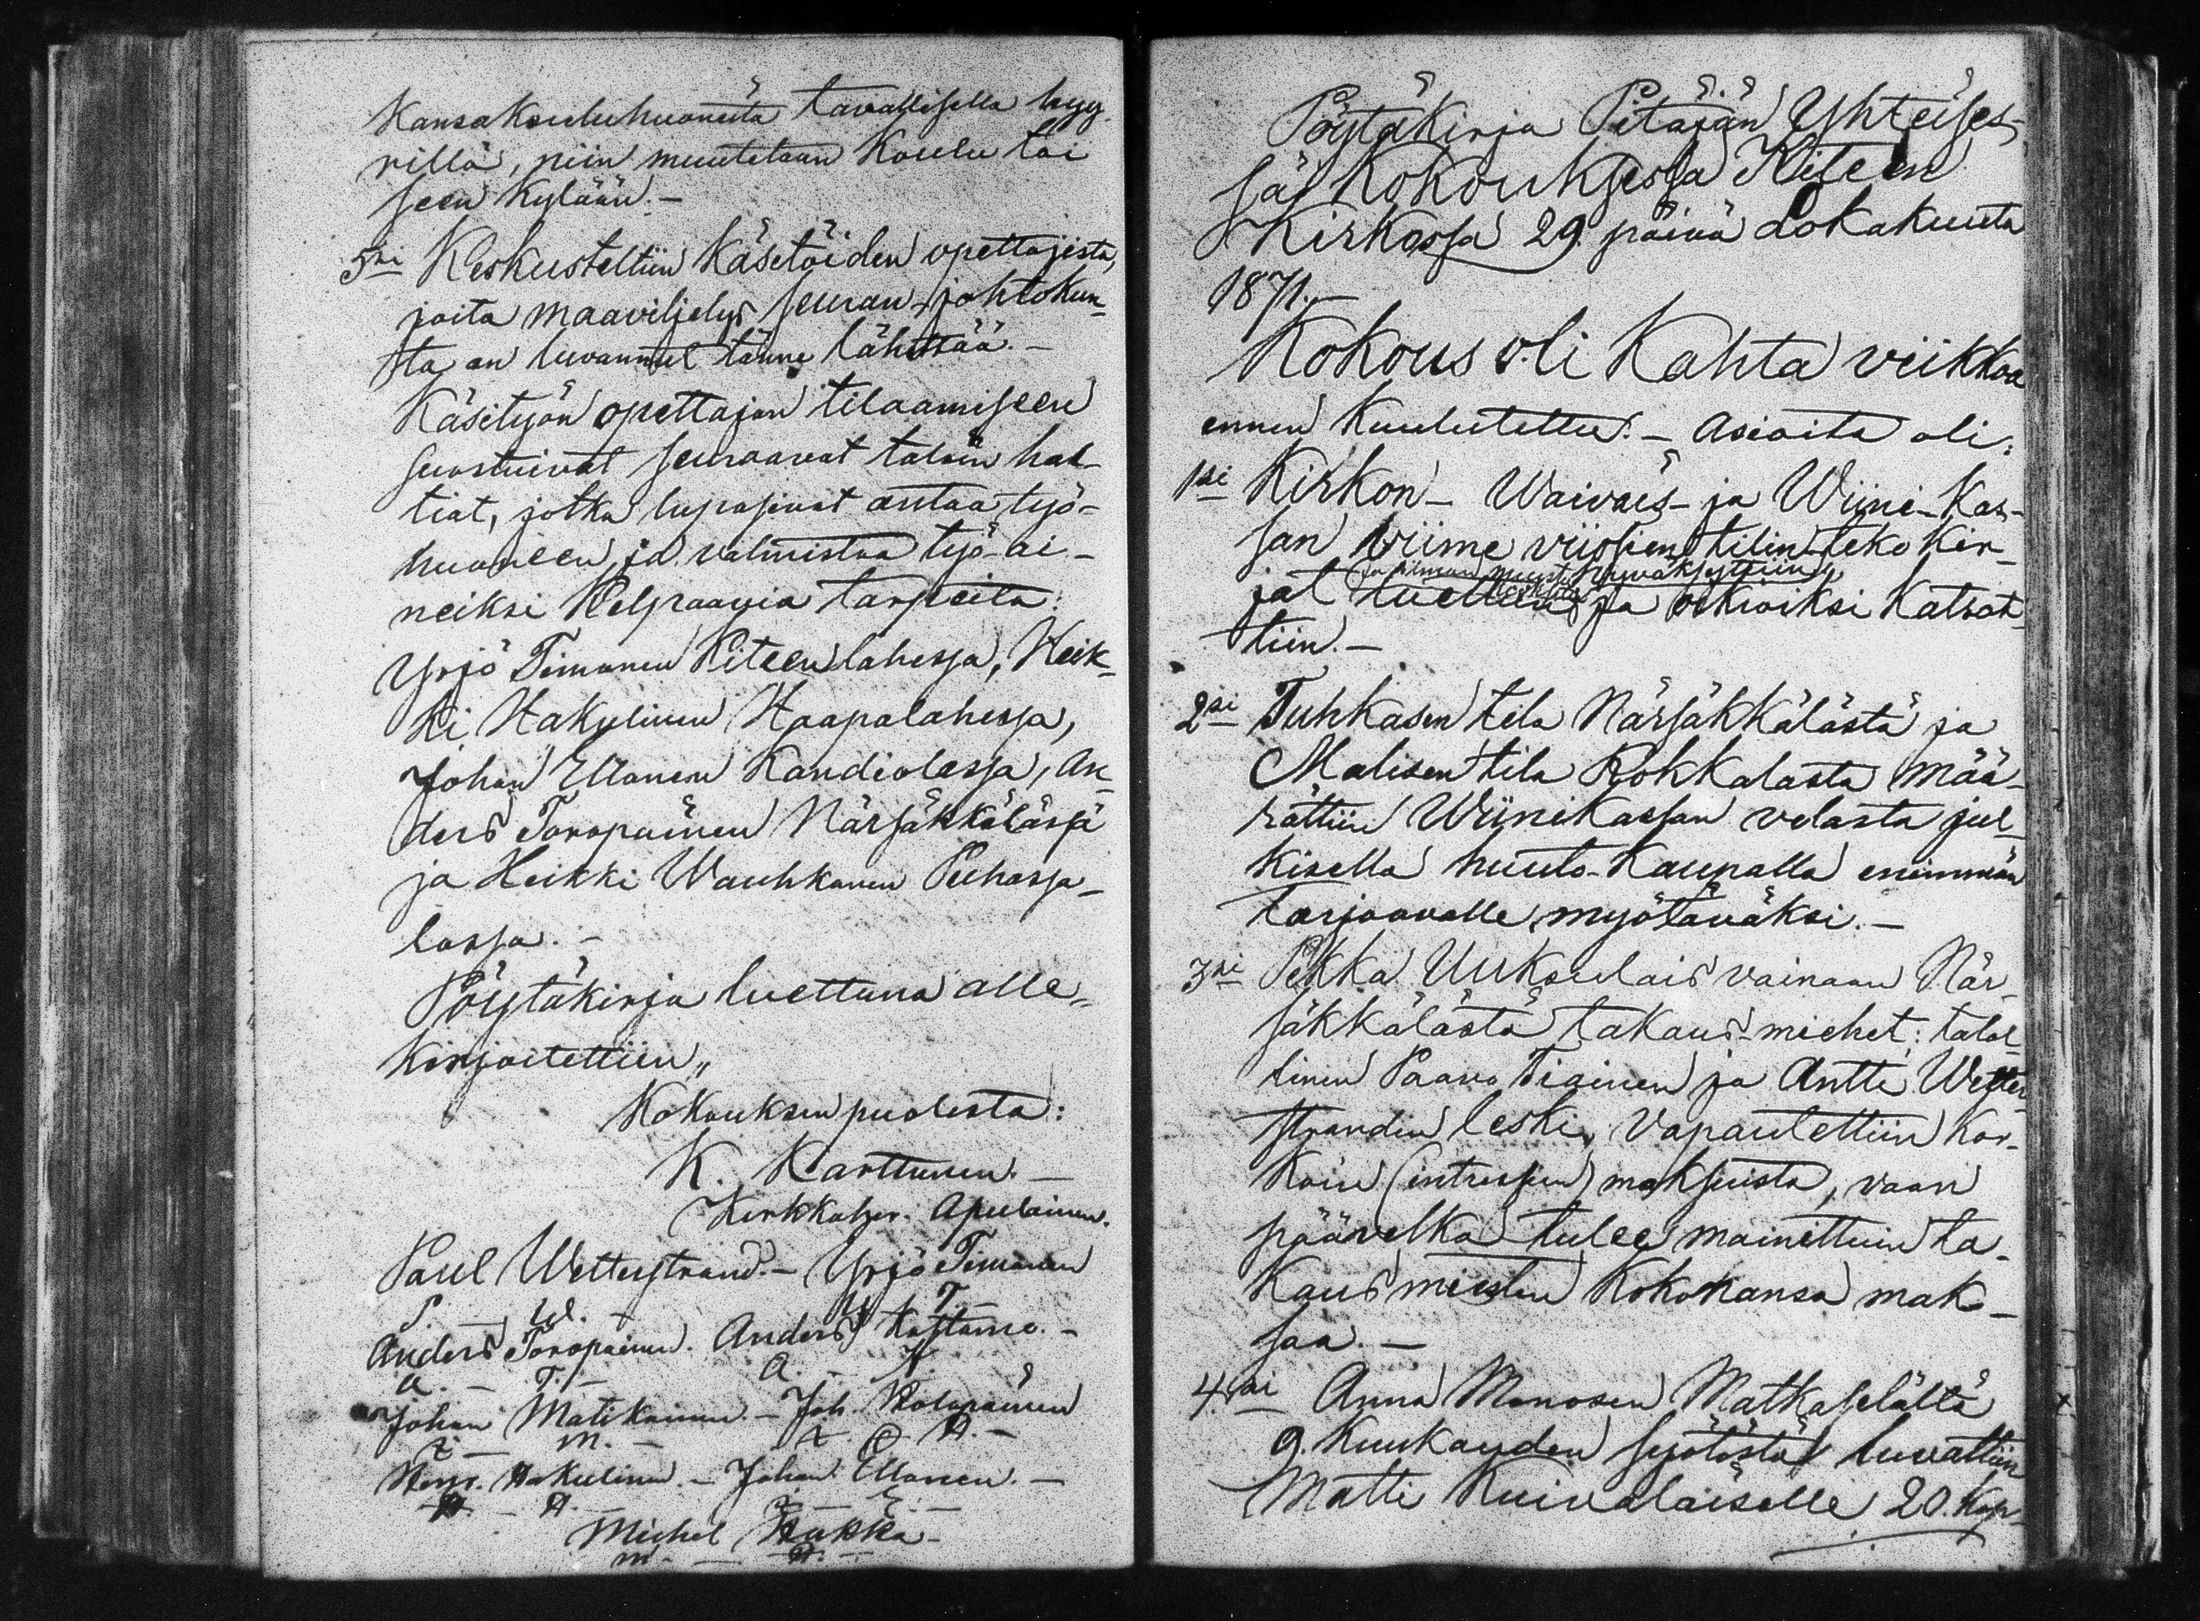 Kansakouluhuoneita tavallisella hyy
rillä, niin muutetaan Koulu toi
seen Kylään. —
5si Keskusteltiin Käsitöiden opettajista,
joita maaviljelys seuran johtokun-
ta on luvannut tänne lähettää. —
Käsityön opettajan tilaamiseen
suostuivat seuraavat taloin hal-
tiat, jotka lupasivat antaa työ-
huoneen ja valmistaa työ-ai-
neiksi Kelpaavia tarpeita:
Yrjö Timonen Kiteenlahessa, Heik-
ki Hakulinen Haapalahessa,
Johan Ellonen Kandiolassa, An-
ders Toropainen Närsäkkälässä
ja Heikki Wauhkonen Puhossa-
lossa. —
Pöytäkirja luettuna alle-
kirjoitettiin„
Kokouksen puolesta:
K. Karttunen. —
Kirkkoher. Apulainen.
Paul Wetterstrand. — Yrjö Timonen
P. — W. Y. T. —
Anders Toropainen. Anders Kostamo. —
A. — T. — A. — K
Johan Matikainen. — Joh. Holopainen
J. — M. — J. H. —
Henr. Hakulinen. — Johan Ellonen. —
H. — H. — J. — E. —
Michel Hukka —
M. — H. —
Pöytäkirja Pitäjän Yhteises-
sä Kokouksessa Kiteen
Kirkossa 29 päivä Lokakuuta
1871. —
Kokous oli Kahta viikkoa
ennen Kuulutettu. — Asioita oli:
1si Kirkon- Waivais- ja Wiini-Kas-
san viime viissien tilinteko Kir-
ja ilman muistutuksitta hyväksyttiin
jat luettiin ja oikioiksi Katsot-
tiin. —
2si Tuhkasen tila Närsäkkälästä ja
Malisen tila Rokkalasta mää-
rättiin Wiinikassan velasta jul-
kisella huuto-Kaupalla enimmän
tarjoavalle myötäväksi. —
3si Pekka Uuksulais vainaan När-
säkkälästä takaus-miehet: talol-
linen Paavo Tiainen ja Antti Wetter-
strandin leski, Vapautettiin Kor-
koin (intressien) maksuista, vaan
päävelka tulee mainittuin ta-
Kausmiesten Kokonansa mak-
saa. —
4.si Anna Monosen Matkaselältä
9. Kuukauden syötöstä luvattiin
Matti Kuivalaiselle 20. Kop-